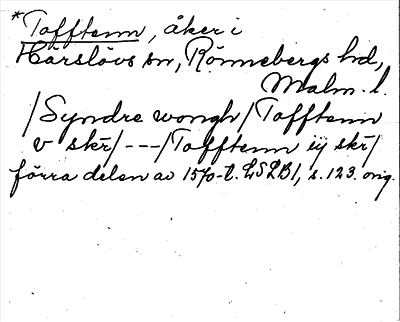 *Tofftenn, åker i
Härslövs sn, Rönnebergs hd,
Malm. l.
/Syndre wongh/Tofftenn
v skr/---/Tofftenn ij skr/
förra delen av 1570-t. LSLB1, s. 123. orig.